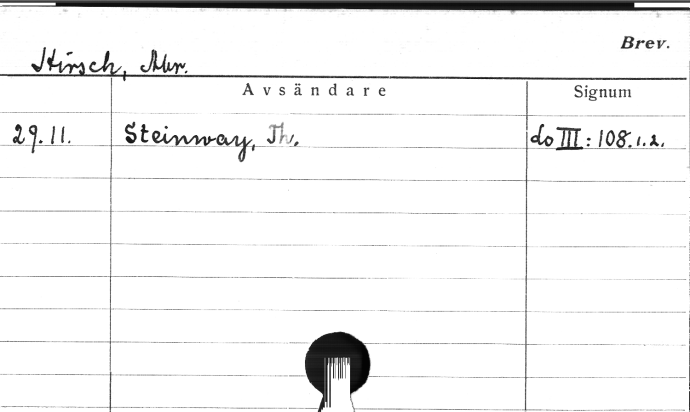 Brev.
Hirsch, Abr.
Avsändare Signum
29.11. Steinway, Th. do III: 108.1.2.